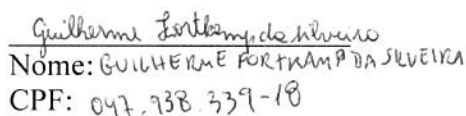 Guilherme Fortkamp da Silveira
Nome: GUILHERME FORTKAMP DA SILVEIRA
CPF: 047.938.339-18